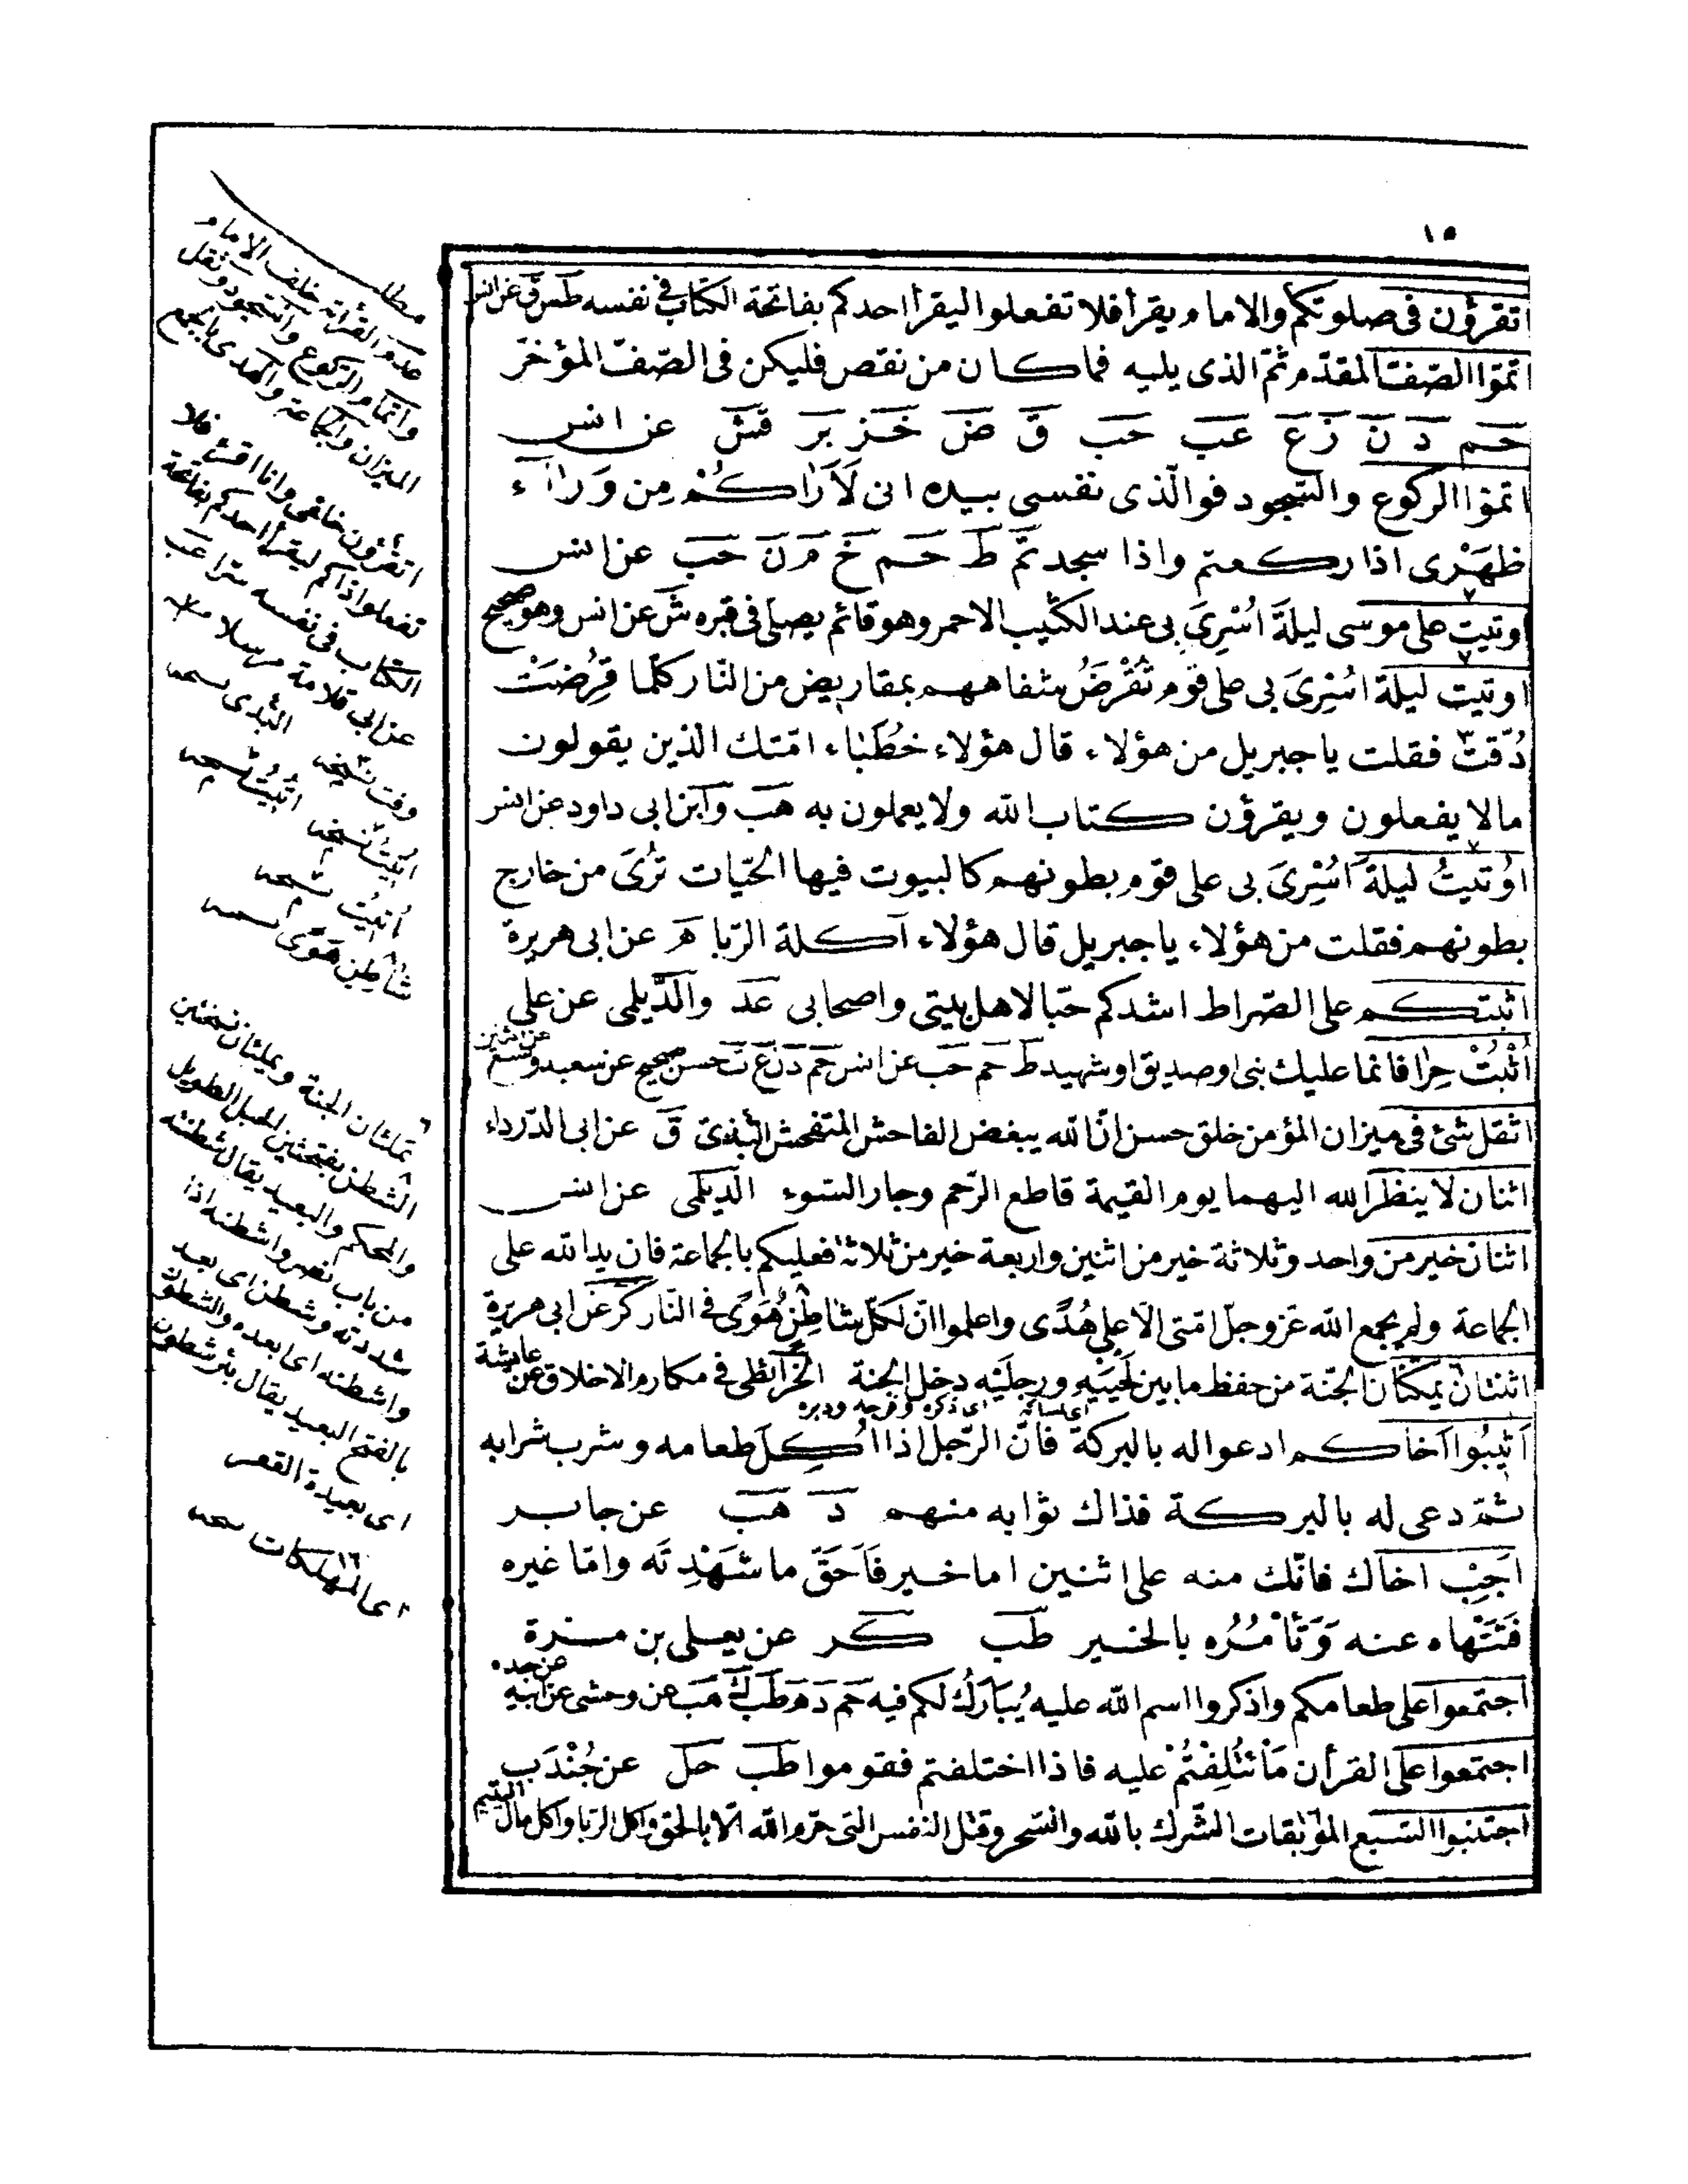 ١٥
اتقرؤن فى صلوتكم والامام يقرأ فلا تفعلوا ليقرأ احدكم بفاتحة الكتاب فى نفسه طس ق عن انس
اتموا الصّفّ المقدّم ثمّ الذى يليه فما كان من نقص فليكن فى الصّفّ المؤخّر
حم د ن ز ع عب حب ق ض خز بر قش عن انس
اتموا الركوع والسّجود فوالّذى نفسى بيده انى لَاَرَاكُمْ مِن وَرَآء
ظَهْرِى اذا ركعتم واذا سجدتم ط حم خ م ن حب عن انس
اوتيت على موسى ليلة اُسْرِىَ بى عند الكثيب الاحمر وهو قائم يصلى فى قبره ش عن انس وهو صحيح
اوتيت ليلة اُسْرِىَ بى على قوم تُقْرَضُ شفاههم بمقاريض من النّار كلّما قُرِضَتْ
دُقّتْ فقلت يا جبريل من هؤلاء قال هؤلاء خُطَبَاء امّتك الذين يقولون
مالا يفعلون ويقرؤن كتاب الله ولا يعملون به هب وابن ابى داود عن انس
اُوتيتُ ليلة اُسْرِىَ بى على قوم بطونهم كالبيوت فيها الحيّات تُرٰى من خارج
بطونهم فقلت من هؤلاء يا جبريل قال هؤلاء آكلة الرّبا هَ عن ابى هريرة
اثبتكم على الصّراط اشدكم حبّا لاهل بيتى واصحابى عد والدّيلمى عن على
اُثْبُتْ حِرَا فانما عليك نبى او صديق او شهيد ط حم حب عن انس حم د ن ع ت حسن صحيح عن سعيد
اثقل شئ فى ميزان المؤمن خلق حسن انّ الله يبغض الفاحش المتفحش البذى ق عن ابى الدّرداء
اثنان لا ينظر الله اليهما يوم القيمة قاطع الرّحم وجار السّوء الديلمى عن انس
اثنان خير من واحد وثلاثة خير من اثنين واربعة خير من ثلاثة فعليكم بالجماعة فان يد الله على
الجماعة ولم يجمع الله عزوجل امتى الّا على هُدًى واعلموا انّ لكلّ شاطِن هَوًى فى النّار كر عن ابى هريرة
اثنان الجنّة من حفظ ما بين لَحْيَيْهِ ورجليْهِ دخل الجنة الخرائطى فى مكارم الاخلاق عن عايشة
اى لسانه اى ذكره وفرجه ودبره
اَثِيبُوا اَخاكم ادعوا له بالبركة فانّ الرّجل اذا اُكِلَ طعامه وشرب شرابه
ثمّ دعى له بالبركة فذاك ثوابه منهم دَ هَبَ عن جابر
اَجِبْ اخاك فانّك منه على اثنين اما خير فَاَحَقّ ما شَهِدْتَه وامّا غيره
فَتَنْهاه عنه وَتَأْمُرُه بالخير طب كر عن يعلى بن مرة
اجتمعوا على طعامكم واذكروا اسم الله عليه يُبَارَكْ لكم فيه حم د ه طب ك هب عن وحشى عن ابيه عن جده
اجتمعوا على القرأن مَا ئْتَلَفْتُمْ عليه فاذا اختلفتم فقوموا طب حل عن جُنْدَب
اجتنبوا السّبع الموبقات الشّرك بالله والسّحر وقتل النفس التى حرم الله الّا بالحق واكل الرّبا واكل مال اليتيم
مطلب
عدم القرأة خلف الامام
واتمام الركوع والسّجود وثقل
الميزان والجماعة والهدى بالجمع
اتقرؤن خلفى وانا اقرئ فلا
تفعلوا ذاكم ليقرأ احدكم بفاتحة
الكتاب فى نفسه سرا عب
عن ابى قلابة مرسلا
البذى نسخه
اُتيتُ نسخه
شاطِن هَوًى نسخه
الشطن بفتحتين الحبل الطويل
والمحكم والبعيد يقال شطنته
من باب نصر واشطنه اذا
شددته وشطن اى بعد
واشطنه اى ابعده والشطون
بالفتح البعيد يقال بئر شطون
اى بعيدة القعر
اى المهلكات نسخه